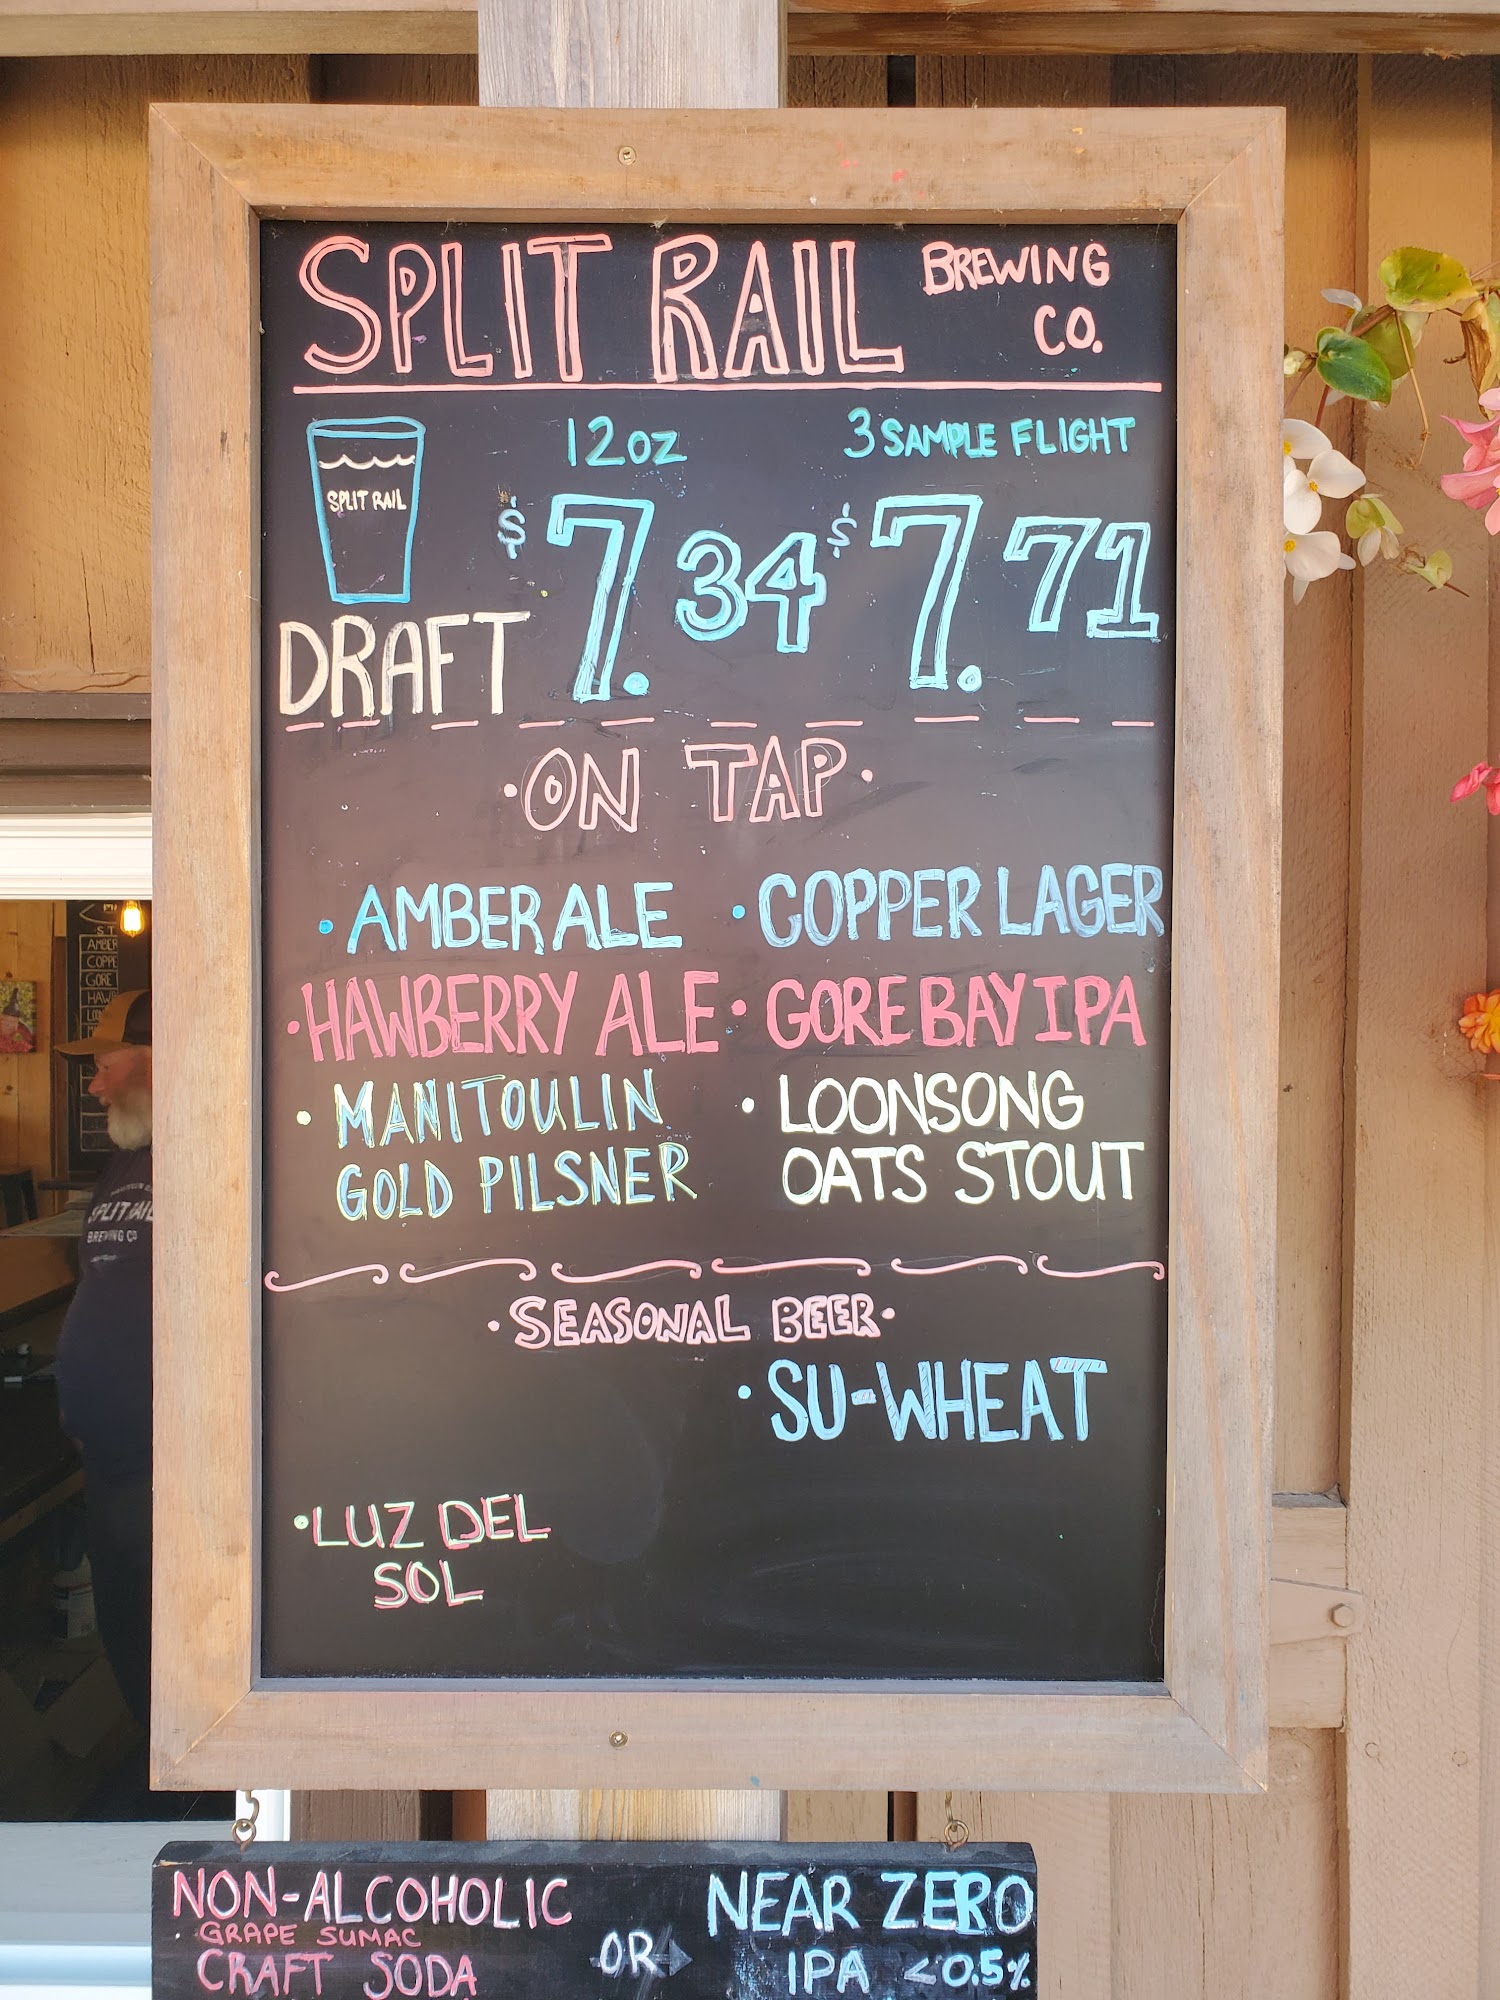 SPLIT RAIL BREWING CO.
12OZ 3 SAMPLE FLIGHT
SPLIT RAIL
$7.34 $7.71
DRAFT
• ON TAP •
• AMBER ALE • COPPER LAGER
• HAWBERRY ALE • GORE BAY IPA
• MANITOULIN • LOONSONG
GOLD PILSNER OATS STOUT
• SEASONAL BEER •
• SU-WHEAT
• LUZ DEL
SOL
NON-ALCOHOLIC NEAR ZERO
• GRAPE SUMAC
CRAFT SODA OR IPA <0.5%
AMBER
COPPE
GORE
HAW
SPLIT RAIL
BREWING CO